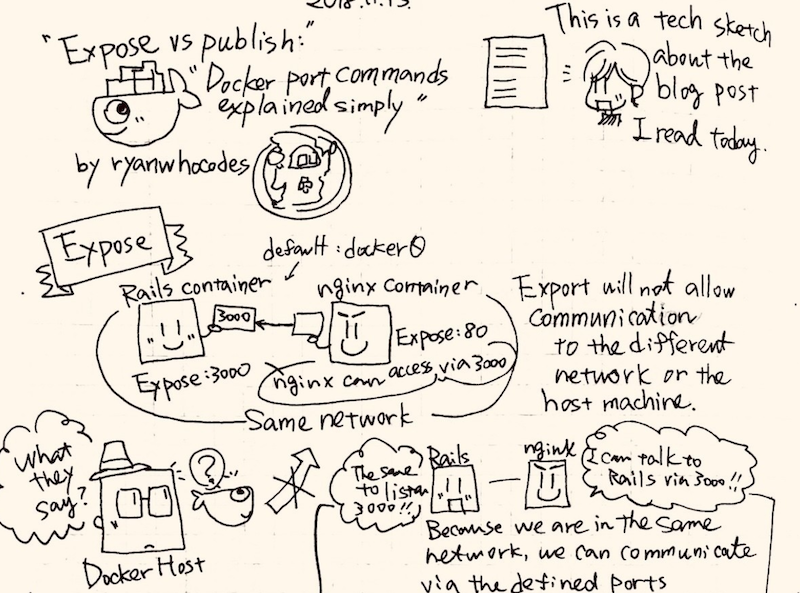 2018.11.15.
"Expose vs publish:"
"Docker port commands
explained simply"
by ryanwhocodes
This is a tech sketch
about the
blog post
I read today.
Expose
default : docker0
Rails container
nginx container
3000
Expose:3000
Expose:80
nginx can access via 3000
Same network
Export will not allow
communication
to the different
network or the
host machine.
What
they
say?
?
Docker Host
The same
to listen
3000!!
Rails
nginx
I can talk to
Rails via 3000!!
Because we are in the same
network, we can communicate
via the defined ports